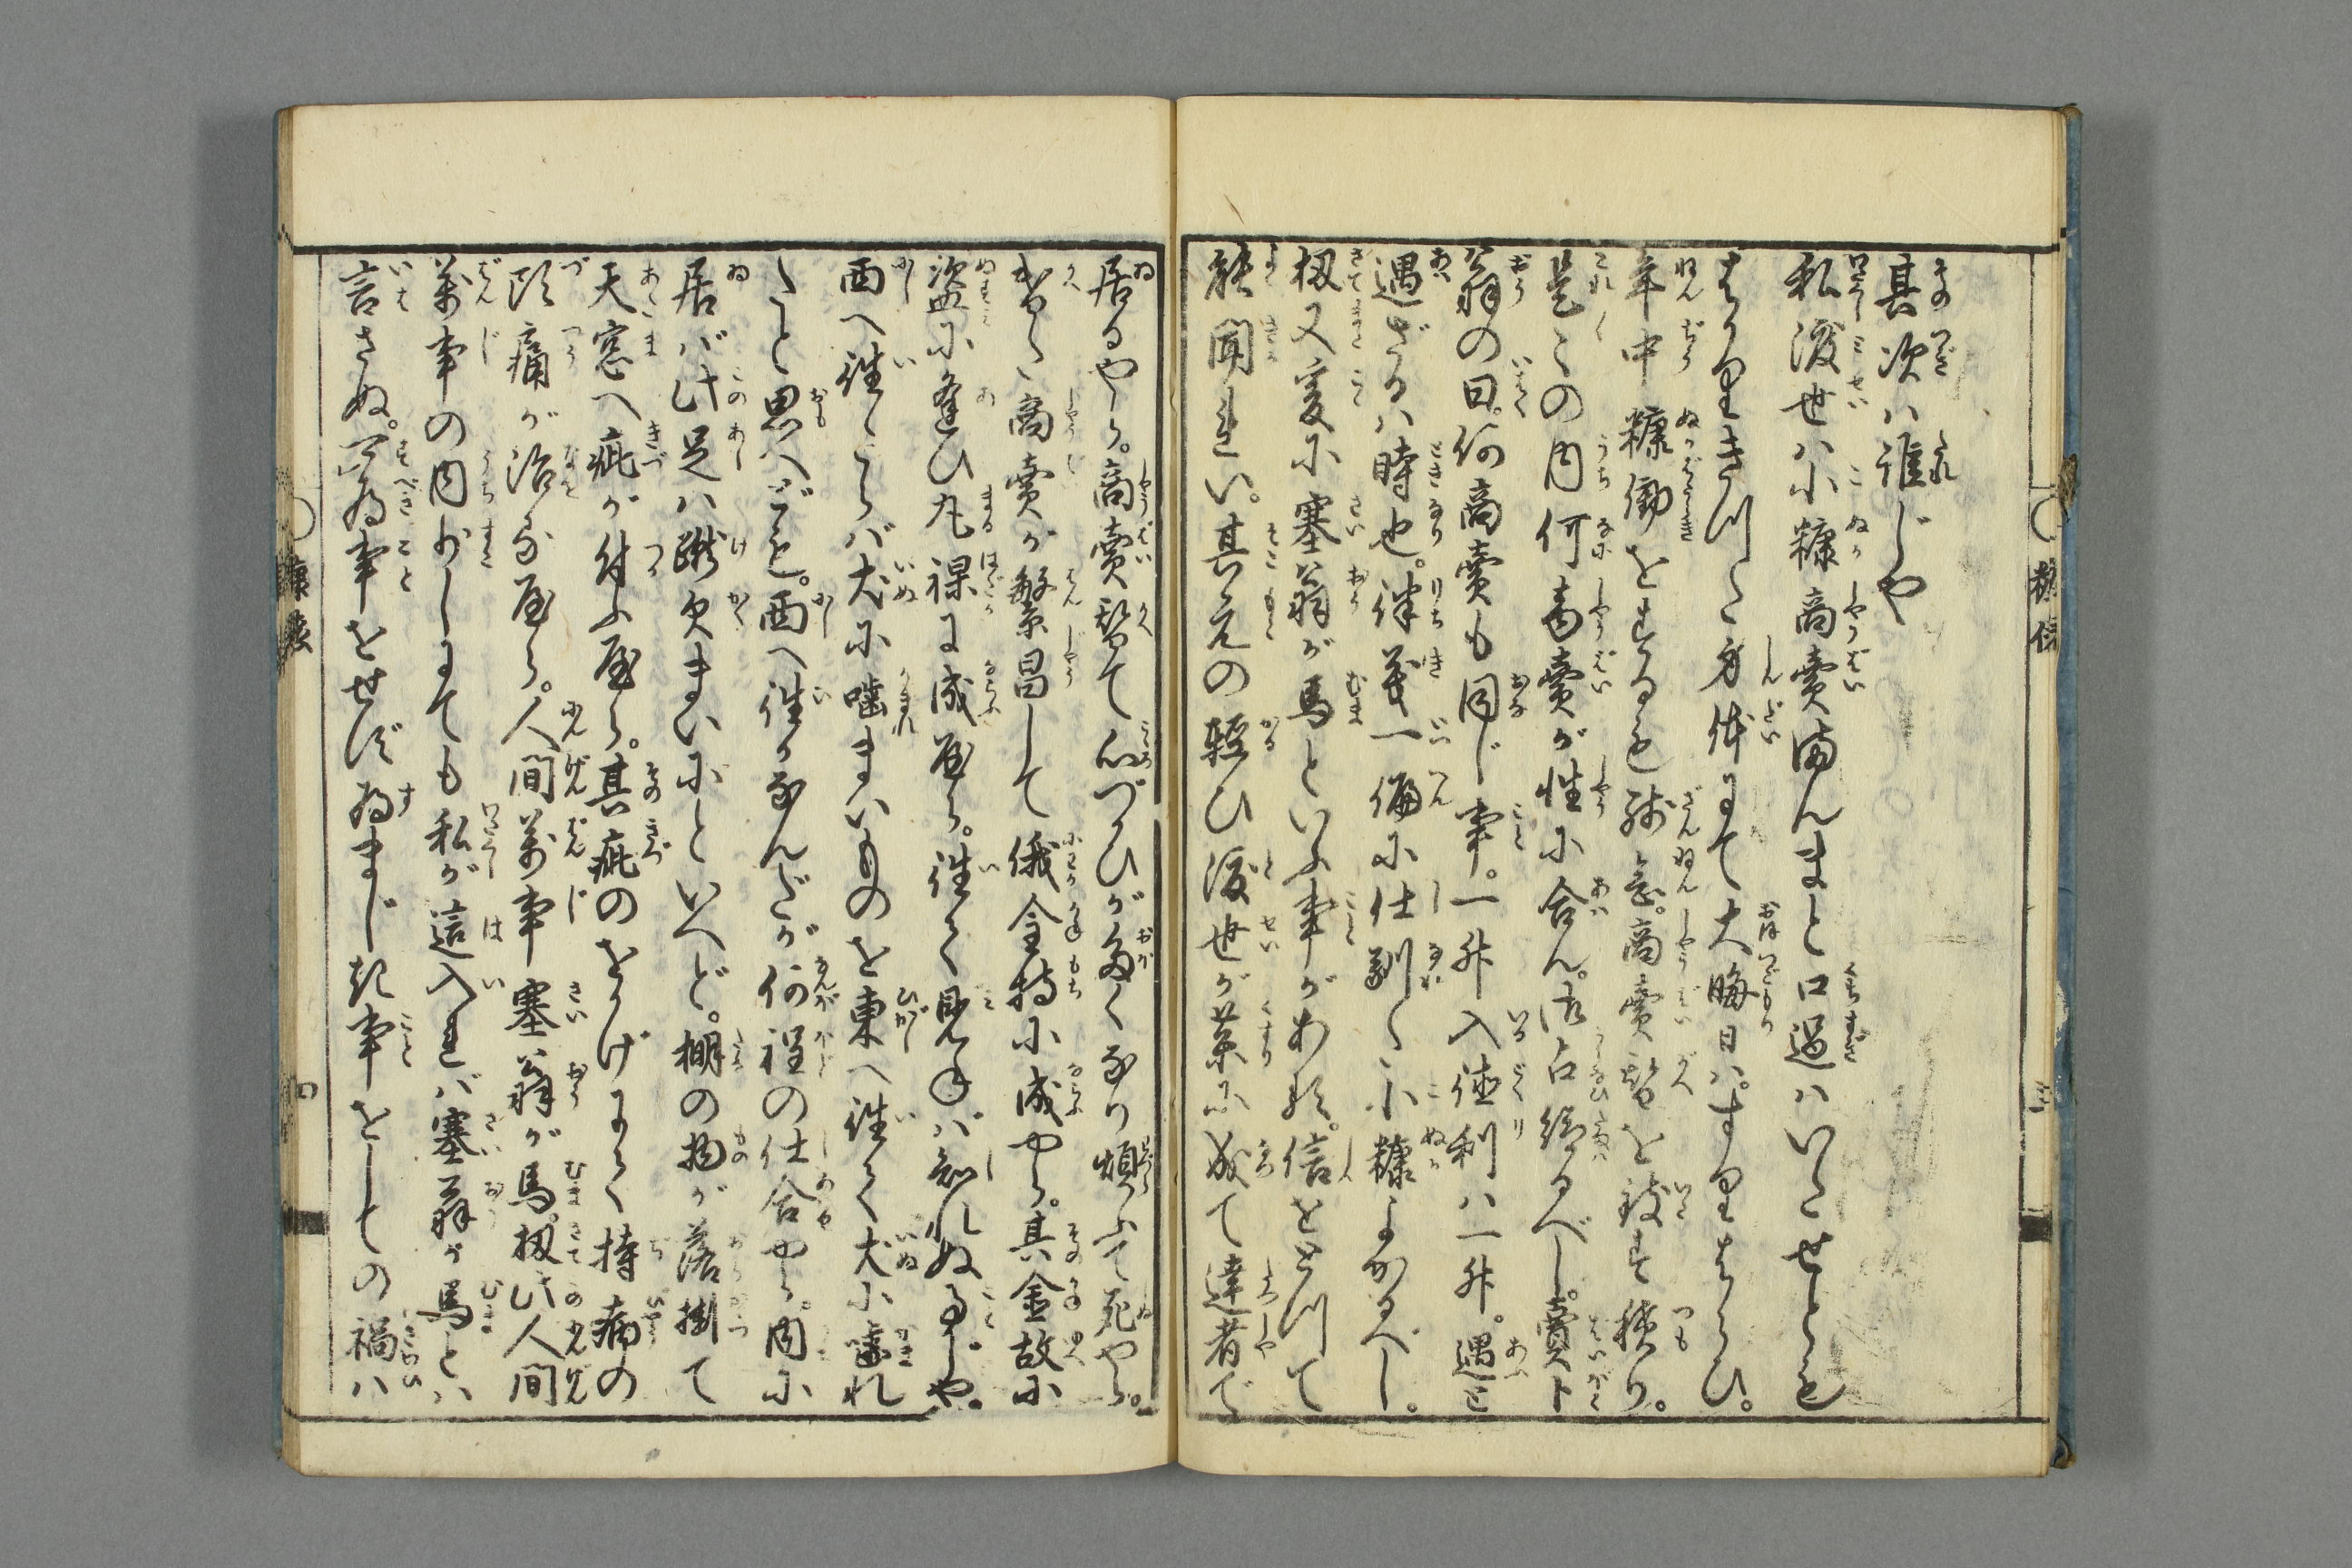 其次ハ誰じや
私渡世ハ小糠商賣渡んまと口過ハいたせとも
まつきさ川た身体にて大晦日ハすつきまらひ。
年中糠働をするも残念。商賣替を致す積り。
是〻の内何商賣が性に合ん。御占給るべし。賣卜
翁の曰。何商賣も同じ事。一升入徳利ハ一升。遇と
遇ざるハ時也。律義一偏に仕馴た小糠よかるべし。
扨又爰に塞翁が馬といふ事があれ。信をとつて
能聞れい。其元の軽ひ渡世が薬に成て達者で
居るやら。商賣替て心づかひが多く成り煩ふて死やら。
替た商賣が繁昌して俄金持に成やら。其金故に
盗に逢ひ丸裸に成やら。往く見ねば知れぬ事じや。
西へ往たらバ犬に噛まいものを東へ往く犬に噛れ
たと思へども。西へ往たなんだが何程の仕合やら。内に
居バ此足ハ蹴欠まいにといへど。棚の物が落掛て
天窓へ疵が付ふやら。其疵のをかげにて持病の
頭痛が治ふやら。人間萬事塞翁が馬。扨此人間
萬事の内少しにても私が這入れば塞翁が馬とハ
言さぬ。可為事をせず為まじき事をしての禍ハ